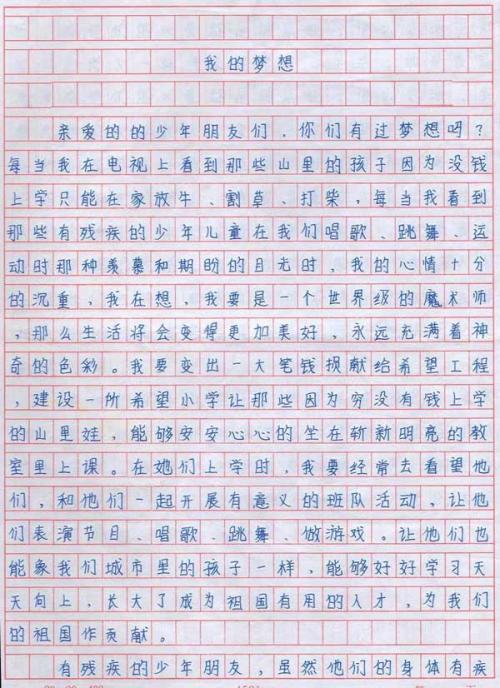 我的梦想
亲爱的的少年朋友们，你们有过梦想吗？
每当我在电视上看到那些山里的孩子因为没钱
上学只能在家放牛、割草、打柴，每当我看到
那些有残疾的少年儿童在我们唱歌、跳舞、运
动时那种羡慕和期盼的目光时，我的心情十分
的沉重，我在想，我要是一个世界级的魔术师
，那么生活将会变得更加美好，永远充满着神
奇的色彩。我要变出一大笔钱损献给希望工程
，建设一所希望小学让那些因为穷没有钱上学
的山里娃，能够安安心心的坐在斩新明亮的教
室里上课。在她们上学时，我要经常去看望他
们，和他们一起开展有意义的班队活动，让他
们表演节目、唱歌、跳舞、做游戏。让他们也
能象我们城市里的孩子一样，能够好好学习天
天向上，长大了成为祖国有用的人才，为我们
的祖国作贡献。
有残疾的少年朋友，虽然他们的身体有疾